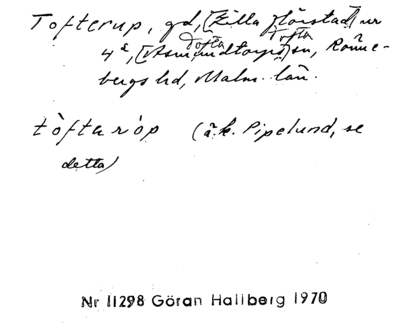 Tofterup, gd, [Lilla Harstad] nr
Tofta Tofta
4ᵈ, [Asmundtorps] sn, Rönne-
bergs hd, Malm. län.
tòftaròp (ä.k. Pipelund, se
detta)
Nr 11298 Göran Hallberg 1970